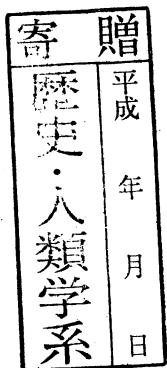 寄贈
平成　年　月　日
歴史・人類学系